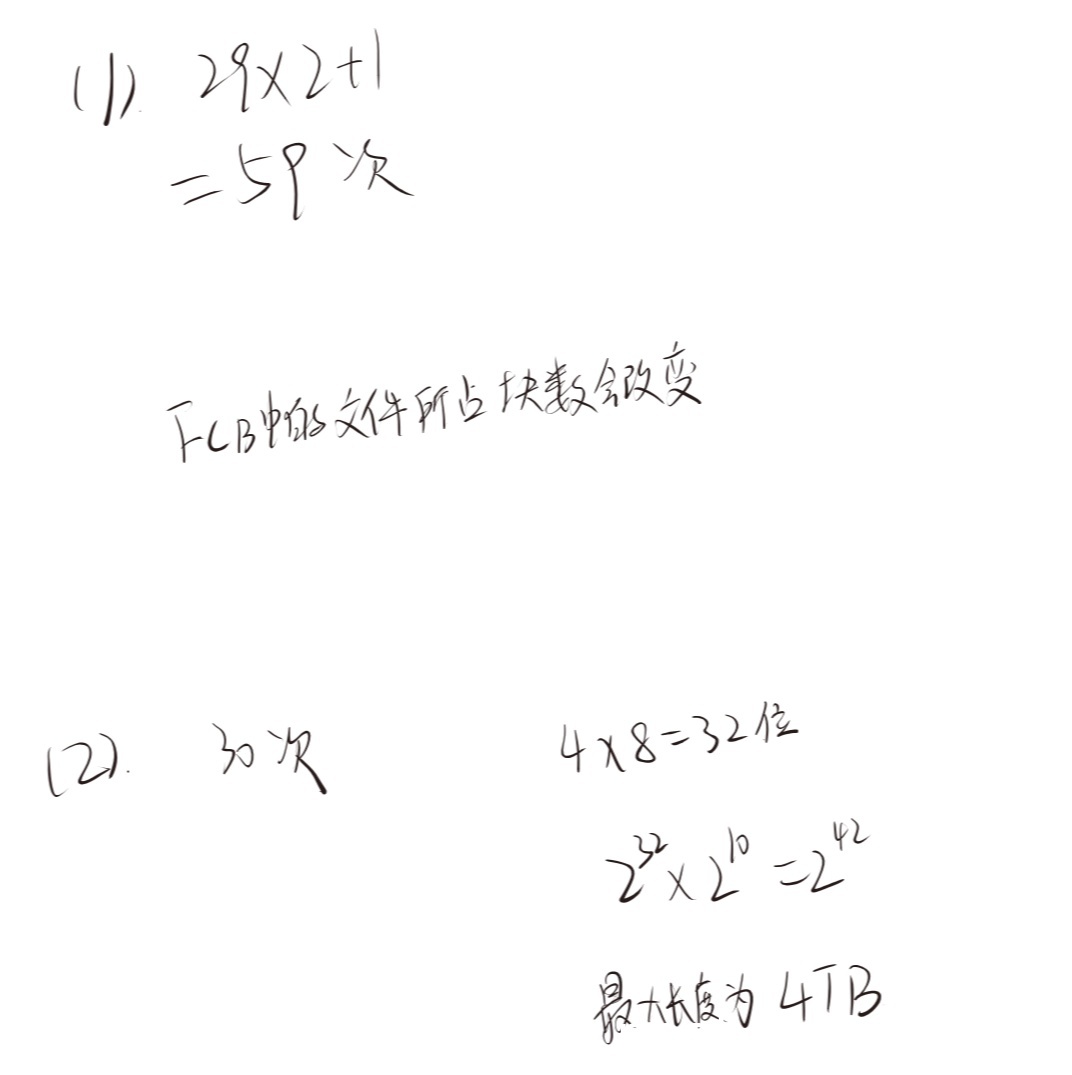 (1). 29×2+1
=59 次
FCB中的文件所占块数会改变
(2). 30次
4×8=32位
2^32×2^10=2^42
最大长度为 4TB